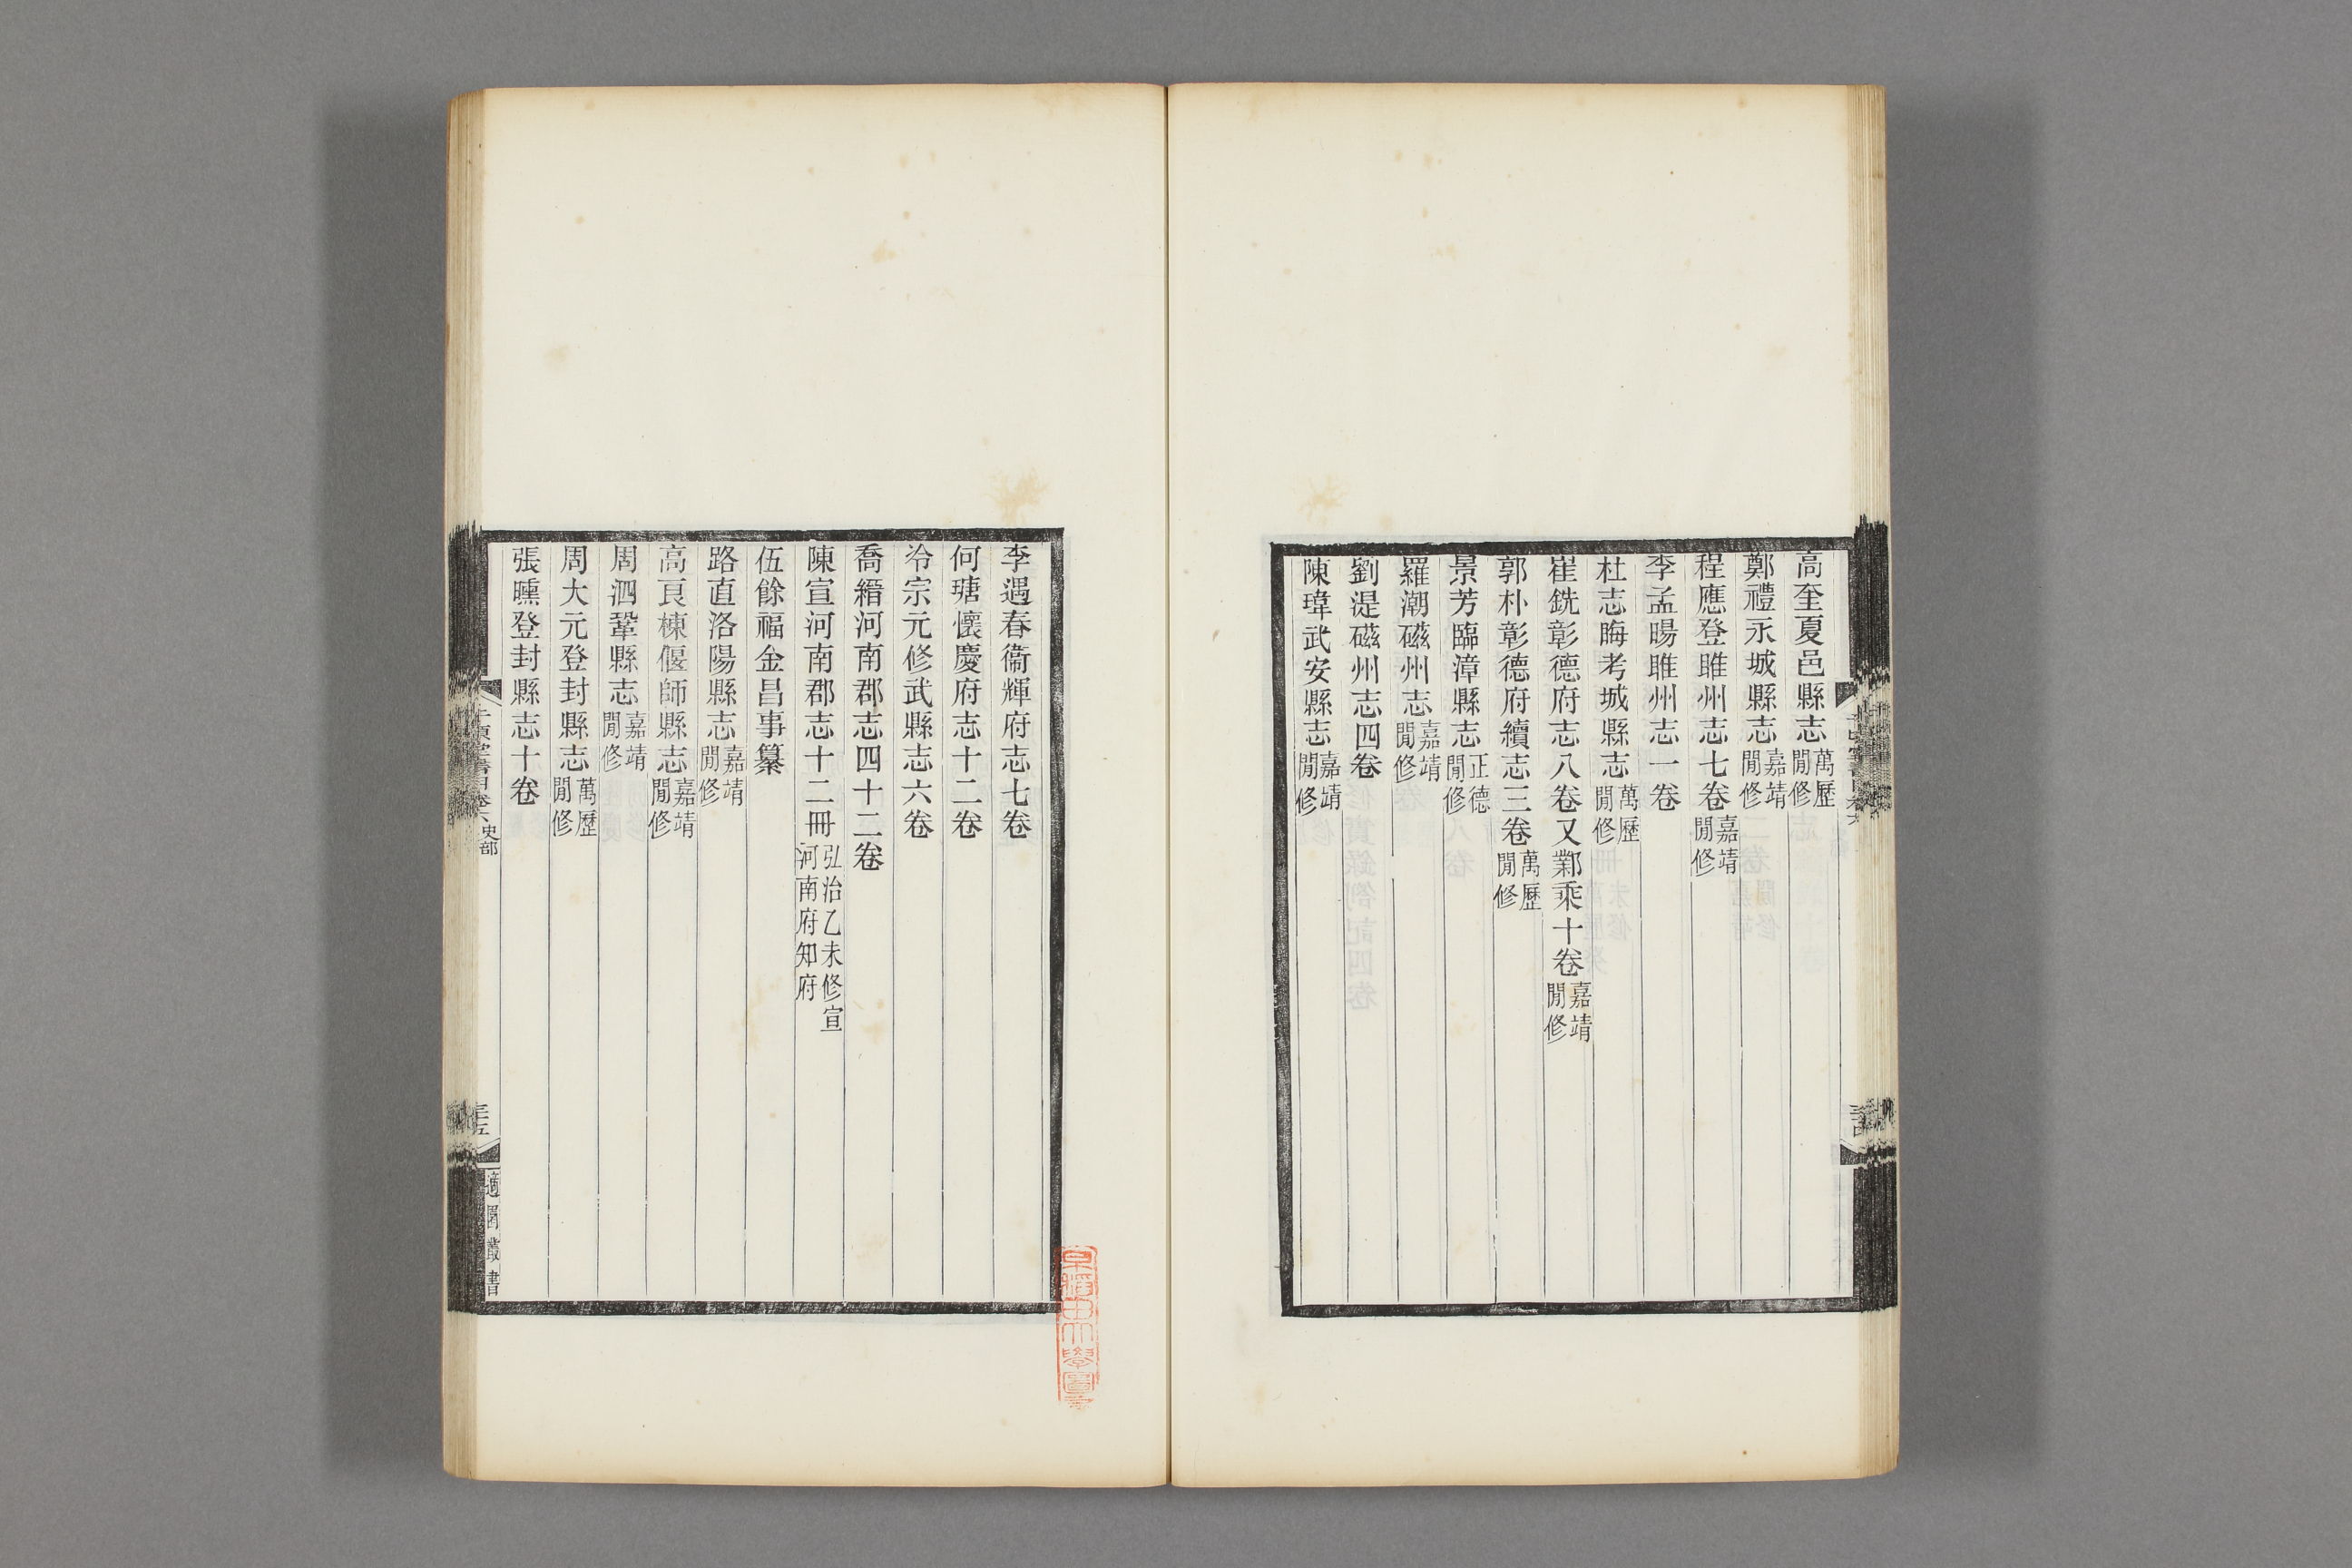 高奎夏邑縣志萬歷閒修
鄭禮永城縣志嘉靖閒修
程應登睢州志七卷嘉靖閒修
李孟暘睢州志一卷
杜志晦考城縣志萬歷閒修
崔銑彰德府志八卷又鄴乘十卷嘉靖閒修
郭朴彰德府續志三卷萬歷閒修
景芳臨漳縣志正德閒修
羅潮磁州志嘉靖閒修
劉湜磁州志四卷
陳瑋武安縣志嘉靖閒修
李遇春衞輝府志七卷
何瑭懷慶府志十二卷
冷宗元修武縣志六卷
喬縉河南郡志四十二卷
陳宣河南郡志十二冊弘治乙未修宣河南府知府
伍餘福金昌事纂
路直洛陽縣志嘉靖閒修
高㒵棟偃師縣志嘉靖閒修
周泗鞏縣志嘉靖閒修
周大元登封縣志萬歷閒修
張曛登封縣志十卷
千頃堂書目卷六史部
三五
適園叢書
早稻田大學圖書